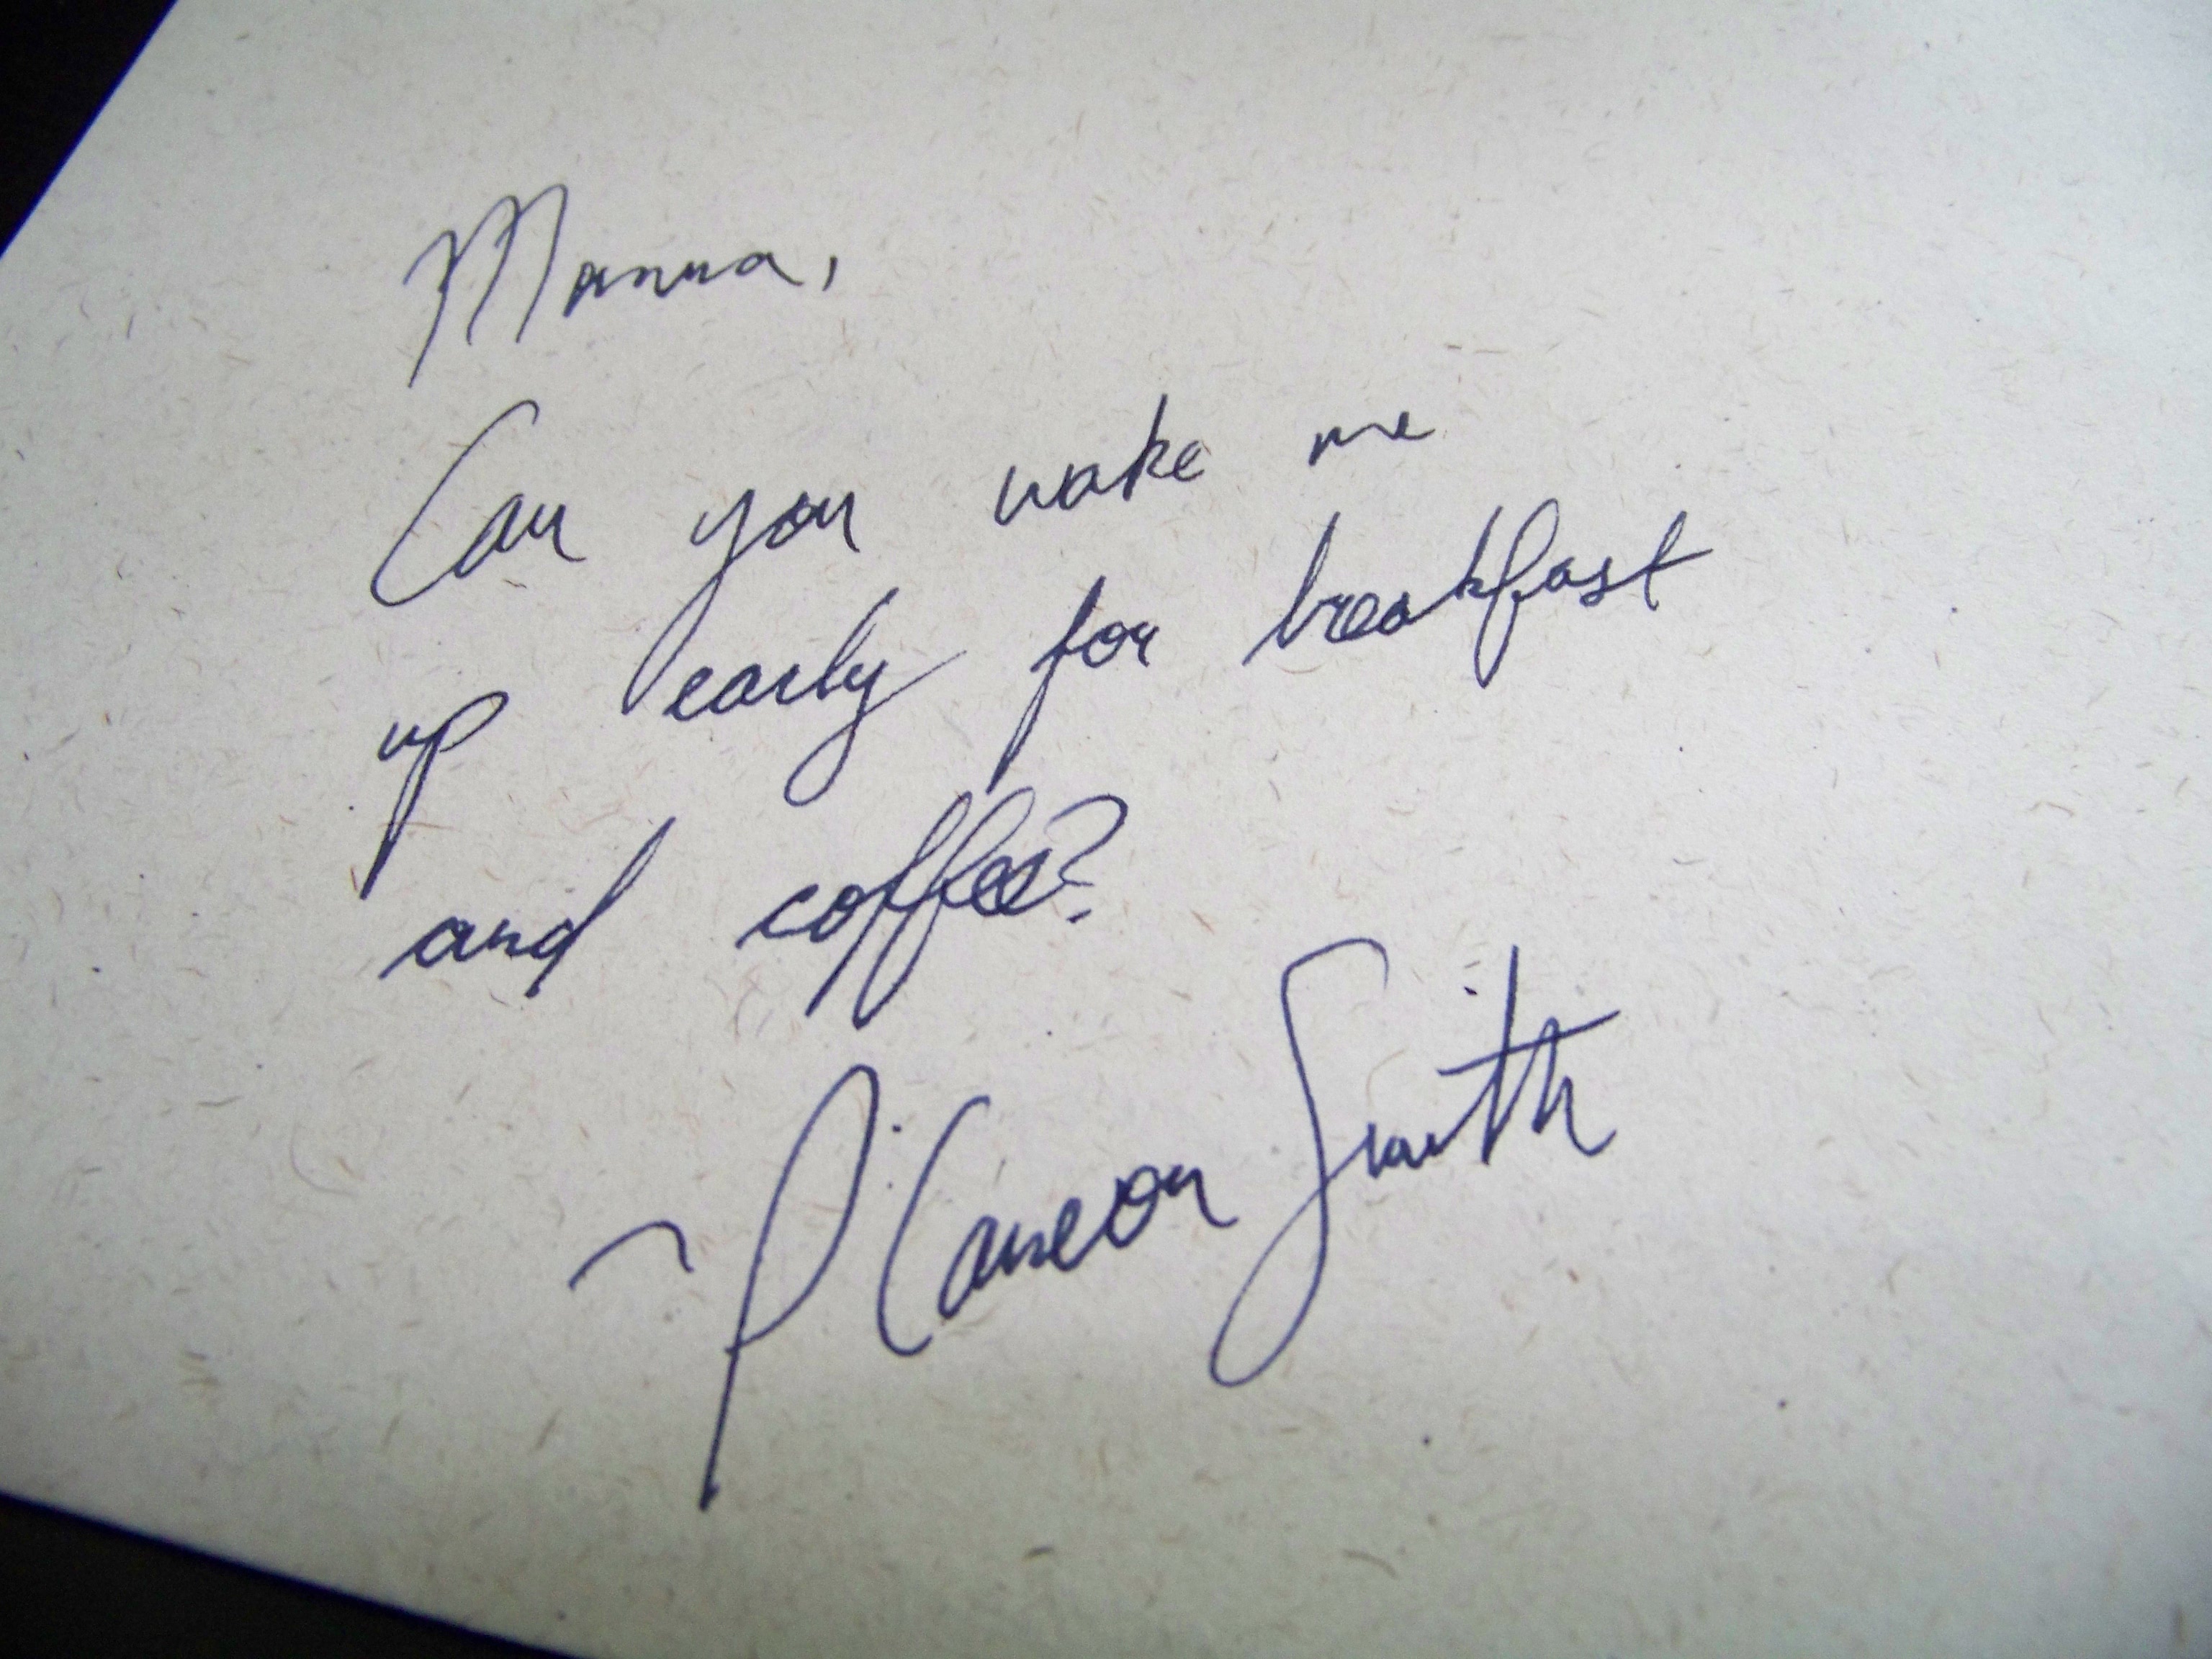 Mamma,
Can you wake me
up early for breakfast
and coffee?
~P. Cameron Smith